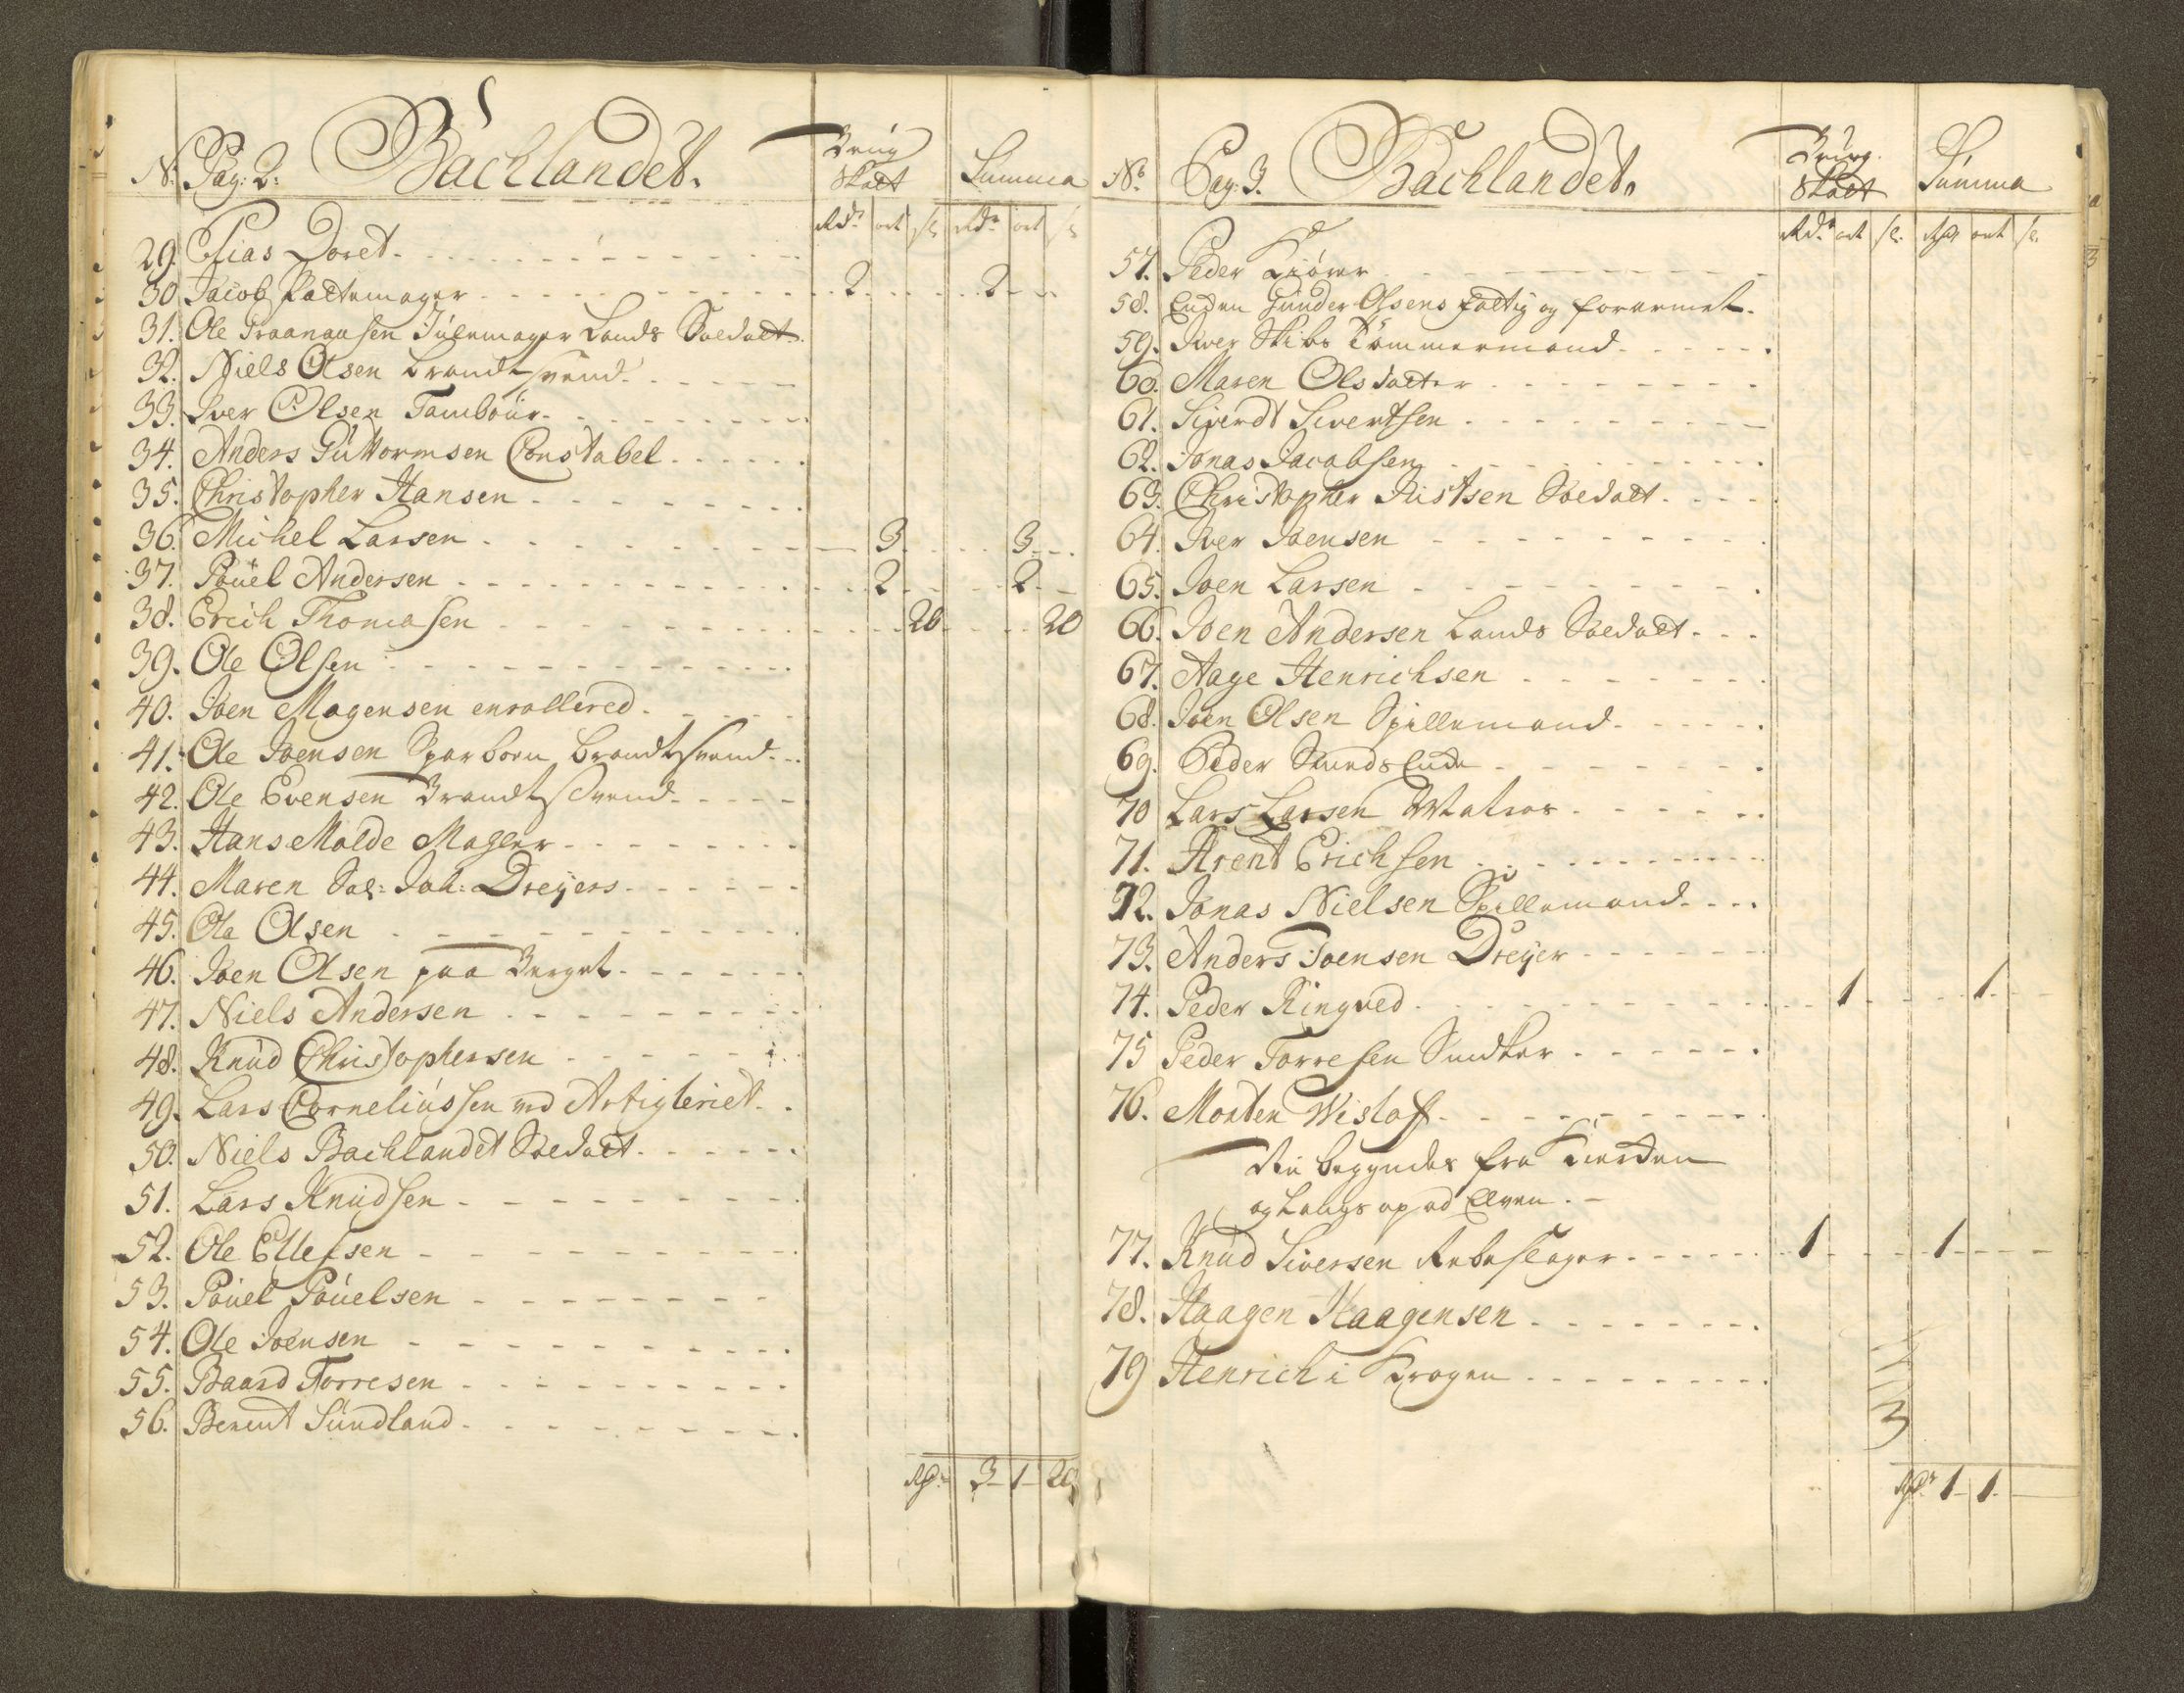 N: Pag: 2: Bachlandet. Krig Skatt Summa
Rdr ort sk Rdr ort sk
29. Elias Doret
30 Jacob Pattemager 2 2
31. Ole Traanausen Julemager Lands Soldatt
32. Niels Olsen brandtsvend
33. Iver Olsen Tambour
34. Anders Guttormsen Constabel
35. Christopher Hansen
36. Michel Larsen 3 3
37. Pouel Andersen 2 2
38. Erich Thomasen 20 20
39. Ole Olsen
40. Joen Mogensen enrollered
41. Ole Joensen Sparboen brandtsvend
42. Ole Evensen Brandtsvend
43. Hans Molde Mager
44. Maren Sal: Joh: Dreyers
45. Ole Olsen
46. Joen Olsen paa Berget
47. Niels Andersen
48. Knud Christophersen
49. Lars Corneliussen ved Artigleriet
50. Niels Bachlandet Soldatt
51. Lars Knudsen
52. Ole Ellefsen
53. Pouel Pouelsen
54. Ole Joensen
55. Baard Torresen
56. Berent Sundland
Rdr 3 1 20
No Pag: 3. Bachlandet. Krigs Skatt Summa
Rdr ort sk. Rdr ort sk
57. Peder Kiører
58. Enchen Gunder Olsens fattig og forarmet.
59. Iver Skibs Tømmermand
60. Maren Olsdatter
61. Siverdt Sivertsen
62. Jonas Jacobsen
63. Christopher Ristsen Soldatt
64. Iver Joensen
65. Joen Larsen
66. Joen Andersen Lands Soldatt
67. Aage Henrichsen
68. Joen Olsen Spillemand
69. Peder
70 Lars Larsen Matros
71. Arent Erichsen
72. Jonas Nielsen Spillemand
73. Anders Joensen Dreyer
74. Peder Ringved 1 1
75 Peder Torresen Snedker
76. Morten Wisloff
Nu begyndes fra Kierken
og Langs op ad Elven
77. Knud Siversen Rebeslager 1 1
78. Haagen Haagensen
79 Henrich i Krogen
Rdr 1 1